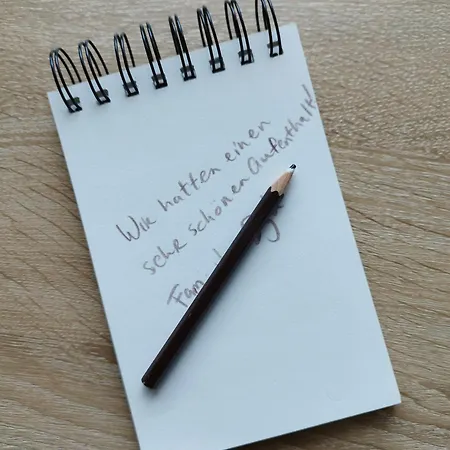 Wir hatten einen
sehr schönen Aufenthalt!
Fam.